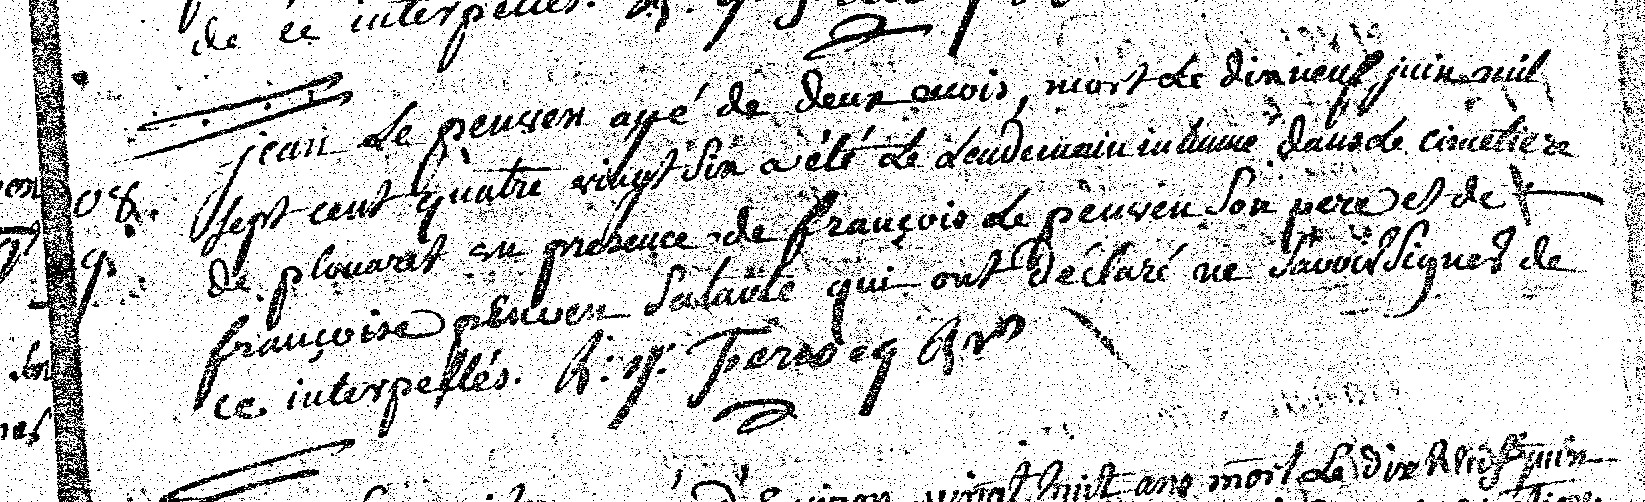 de ce interpellés.
jean Le peuven agé de deux mois, mort Le dixneuf juin mil
sept cent quatre vingt six a été Le Lendemain inhumé dans Le cimetiere
de plouaret en presence de françois Le peuven Son pere et de
françoise peuven Sa tante qui ont déclaré ne Savoir Signer de
ce interpellés.
vingt huit ans mort Le dix juin